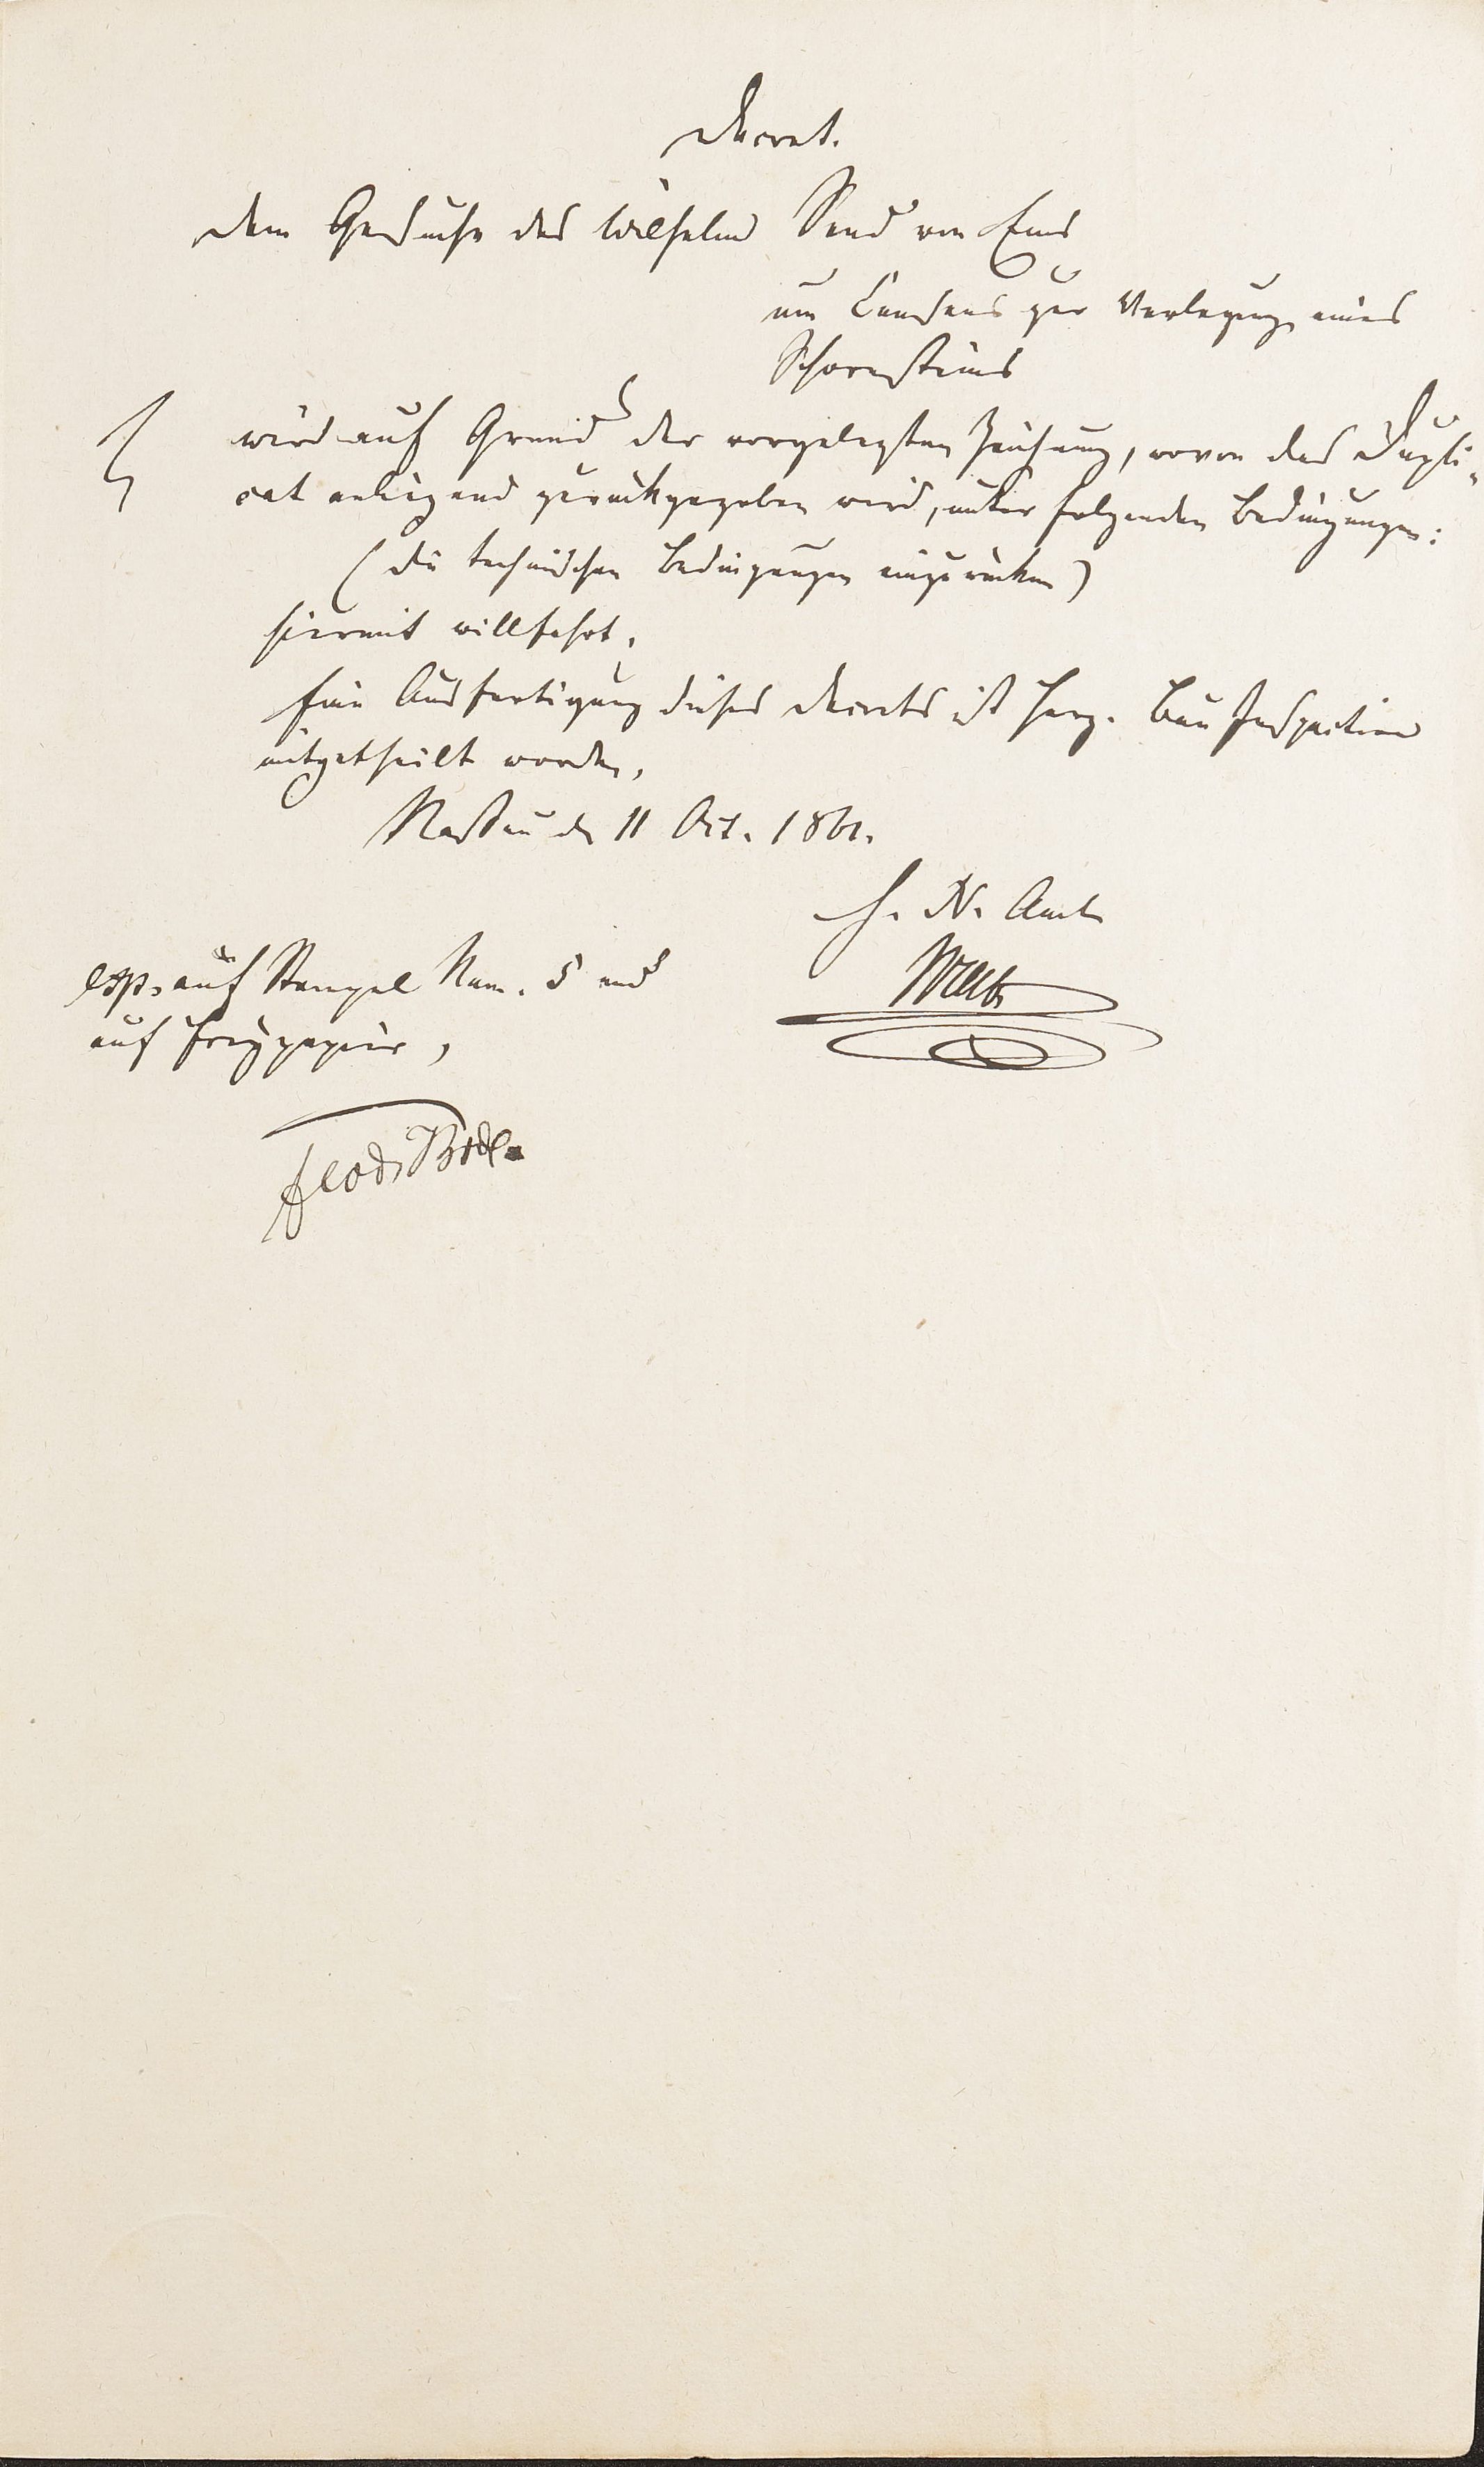 Decret.
Dem Gesuche des Wilhelm von Ems
um Consens zur Verlegung eines
Schornsteins
wird auf Grund der vorgelegten Zeichnung, wovon das Dupli-
cat anliegend zurückgegeben wird, unter folgenden Bedingungen:
(die technischen Bedingungen einzurücken)
hiermit willfahrt.
Eine Ausfertigung dieses Decrets ist Herz. Bau Inspection
mitgetheilt worden.
Nassau den 11 Oct. 1861.
H. N. Amt
exp. auf Stempel Num. 5 und
auf Freypapier,